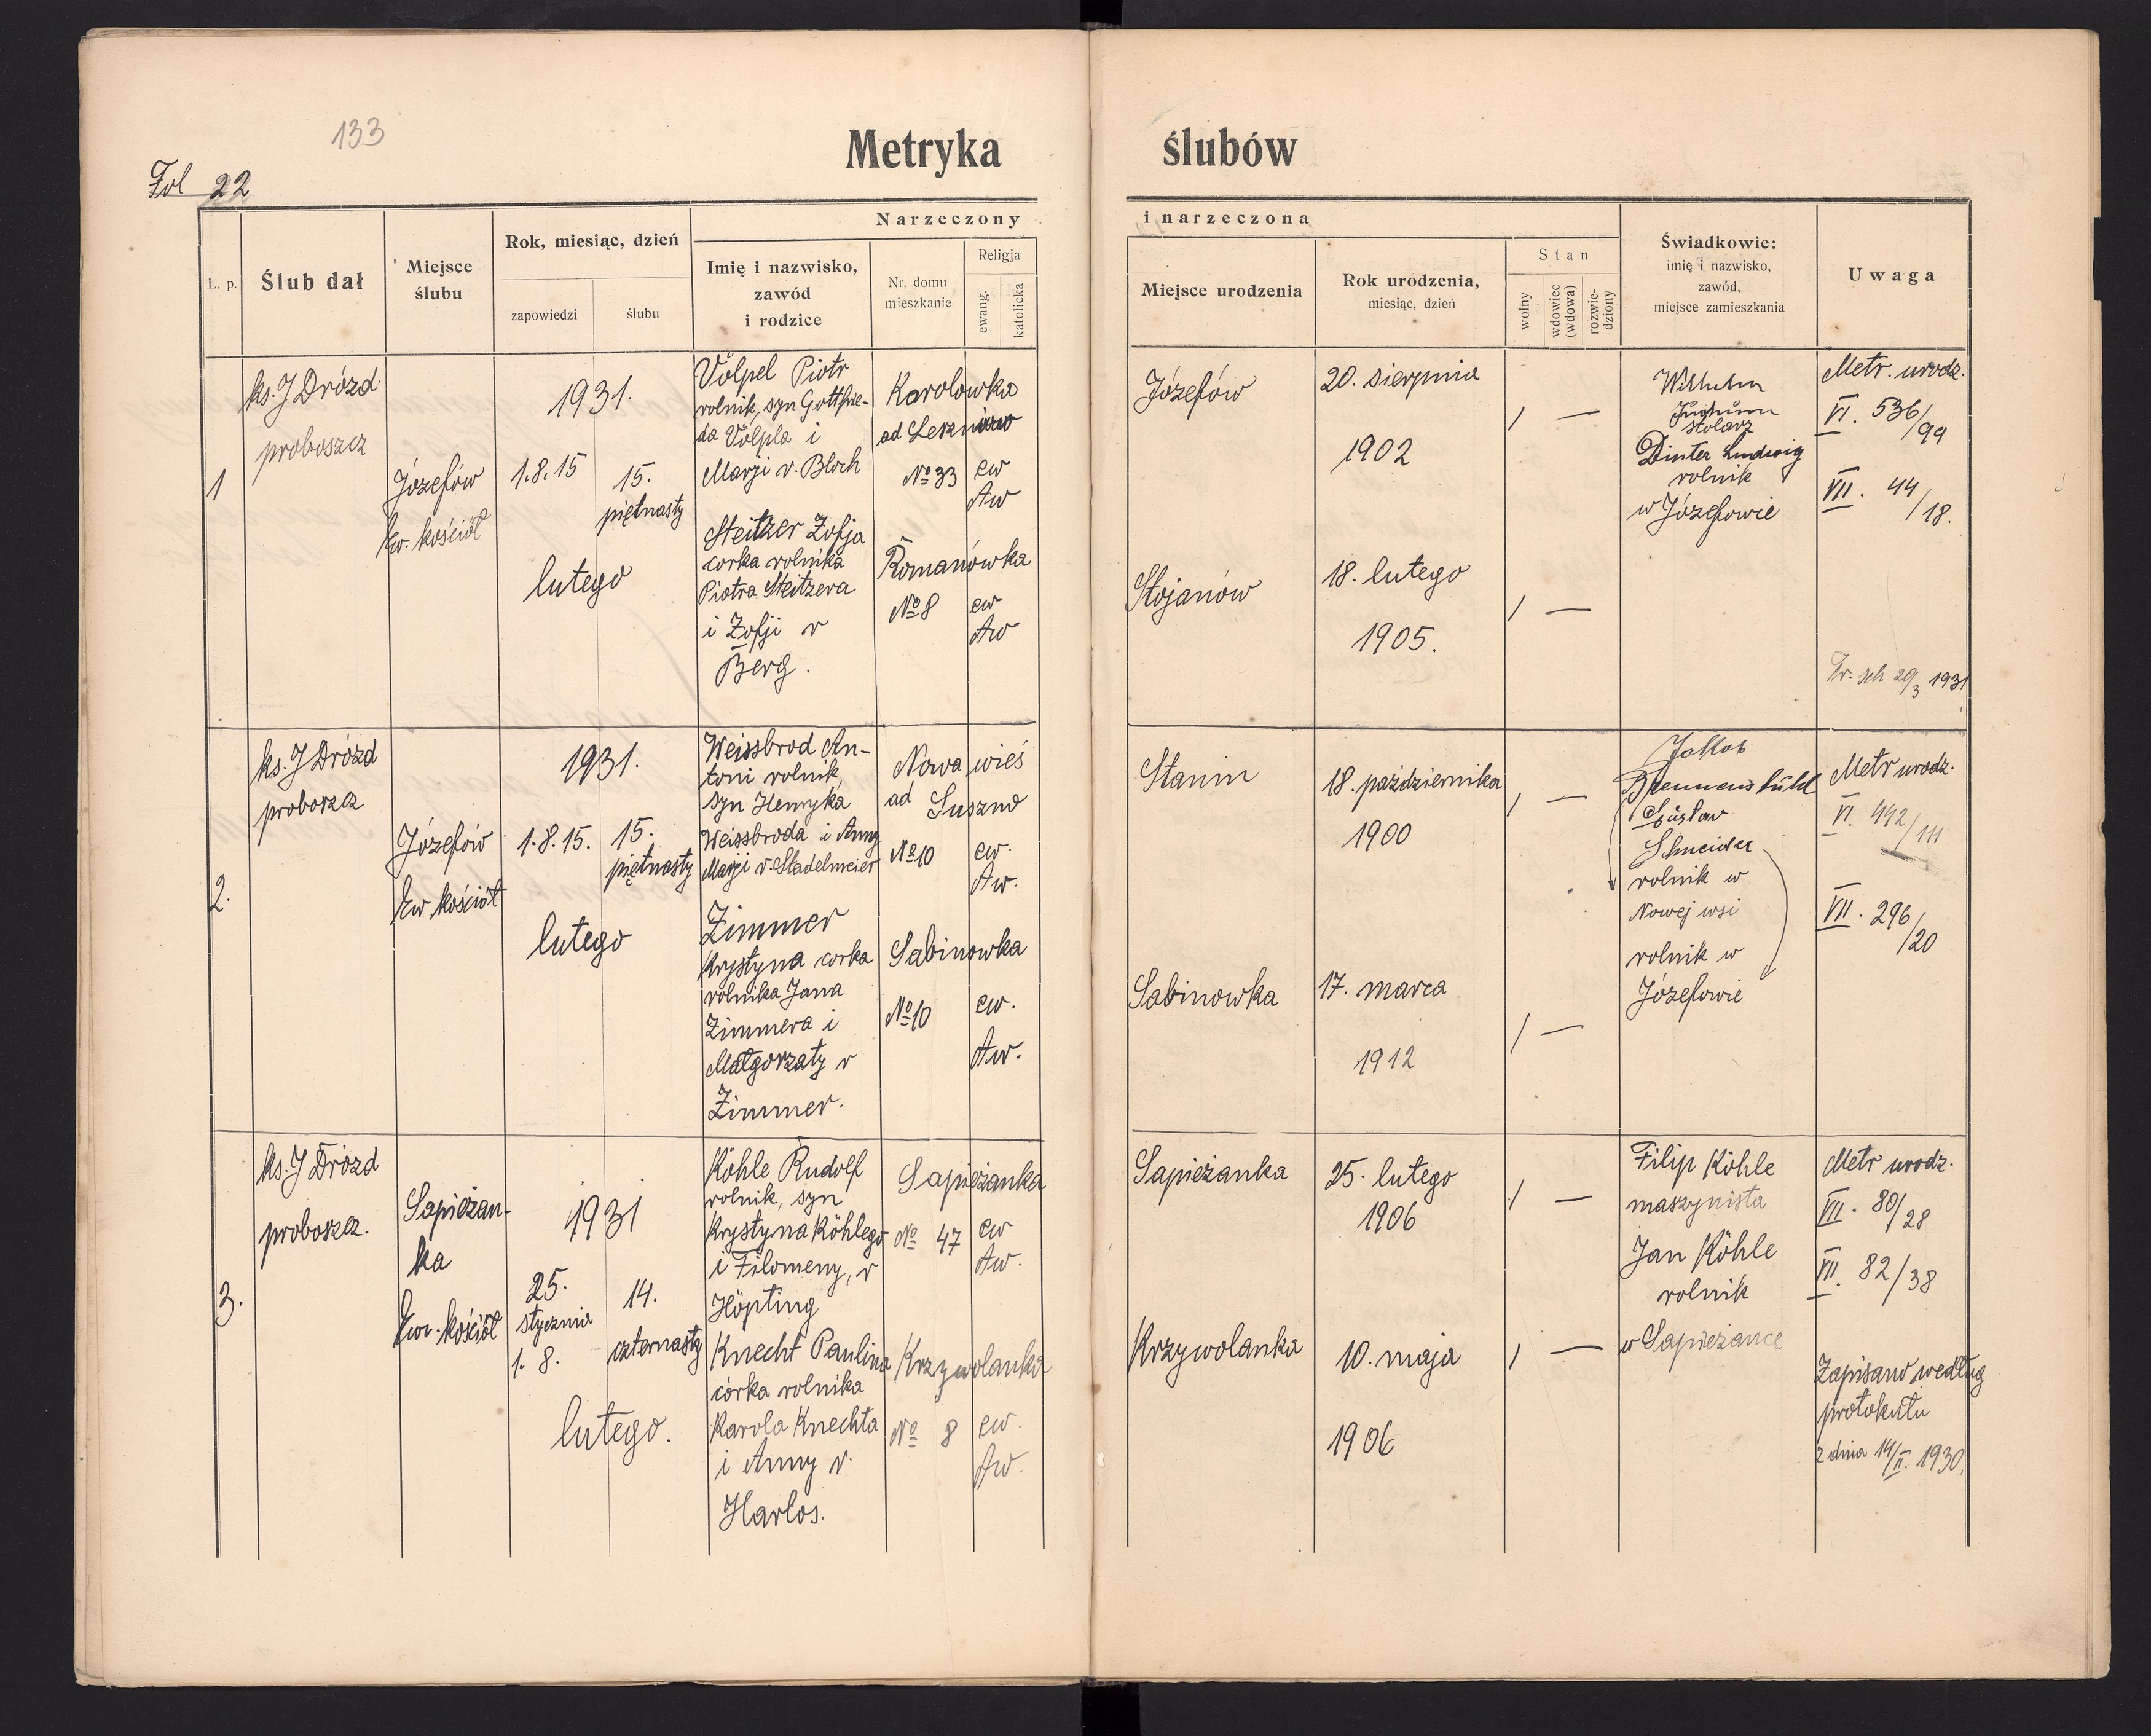 133
Fol 22
Metryka ślubów
Narzeczony i narzeczona
L. p.
Ślub dał
Miejsce
ślubu
Rok, miesiąc, dzień
zapowiedzi
ślubu
Imię i nazwisko,
zawód
i rodzice
Nr. domu
mieszkanie
Religja
ewang.
katolicka
Miejsce urodzenia
Rok urodzenia,
miesiąc, dzień
Stan
wolny
wdowiec
(wdowa)
rozwie-
dziony
Świadkowie:
imię i nazwisko,
zawód,
miejsce zamieszkania
Uwaga
1
ks. J Drózd
proboszcz
Józefów
Ew. kościół
1931.
1.8.15
15.
piętnasty
lutego
Völpel Piotr
rolnik, syn Gottfrie-
da Völpla i
Marji v. Bloch
Karolowka
ad
No 33
ew
Aw
Józefów
20. sierpnia
1902
/ —
Steitzer Zofja
corka rolnika
Piotra Steitzera
i Zofji v
Berg.
Romanówka
No 8
ew
Aw
Stojanów
18. lutego
1905.
/ —
Wilhelm
stolarz
Dinter Ludwig
rolnik
w Józefowie
Metr. urodz.
VI. 536/99
VII. 44/18.
Tr. sch 29/3 1931
2.
ks. J Drózd
proboszcz
Józefów
Ew. kościół
1931.
1.8.15.
15.
piętnasty
lutego
Weissbrod An-
toni rolnik,
syn Henryka
Weissbroda i Anny
Marji v. Stadelmeier
Nowa wieś
ad Suszno
No 10
ew.
Aw.
Stanin
18. października
1900
/ —
Zimmer
Krystyna corka
rolnika Jana
Zimmera i
Małgorzaty v
Zimmer.
Sabinowka
No 10
ew.
Aw.
Sabinowka
17. marca
1912
/ —
Jakob
Brennenstuhl
Gustaw
Schneider
rolnik w
Nowej wsi
rolnik w
Józefowie
Metr urodz.
VI. 492/111
VII. 296/20
3.
ks. J Drózd
proboszcz.
Sapieżan-
ka
Ew. kościół
1931
25.
stycznia
1. 8.
14.
czternasty
lutego.
Köhle Rudolf
rolnik, syn
Krystyna Köhlego
i Filomeny, v
Höpting
Sapieżanka
No 47
ew
Aw.
Sapieżanka
25. lutego
1906
/ —
Knecht Paulina
córka rolnika
Karola Knechta
i Anny v.
Harlos.
Krzywolanka
No 8
ew.
Aw.
Krzywolanka
10. maja
1906
/ —
Filip Köhle
maszynista
Jan Köhle
rolnik
w Sapieżance
Metr urodz.
VII. 80/28
VII. 82/38
Zapisano według
protokułu
z dnia 14/II. 1930.